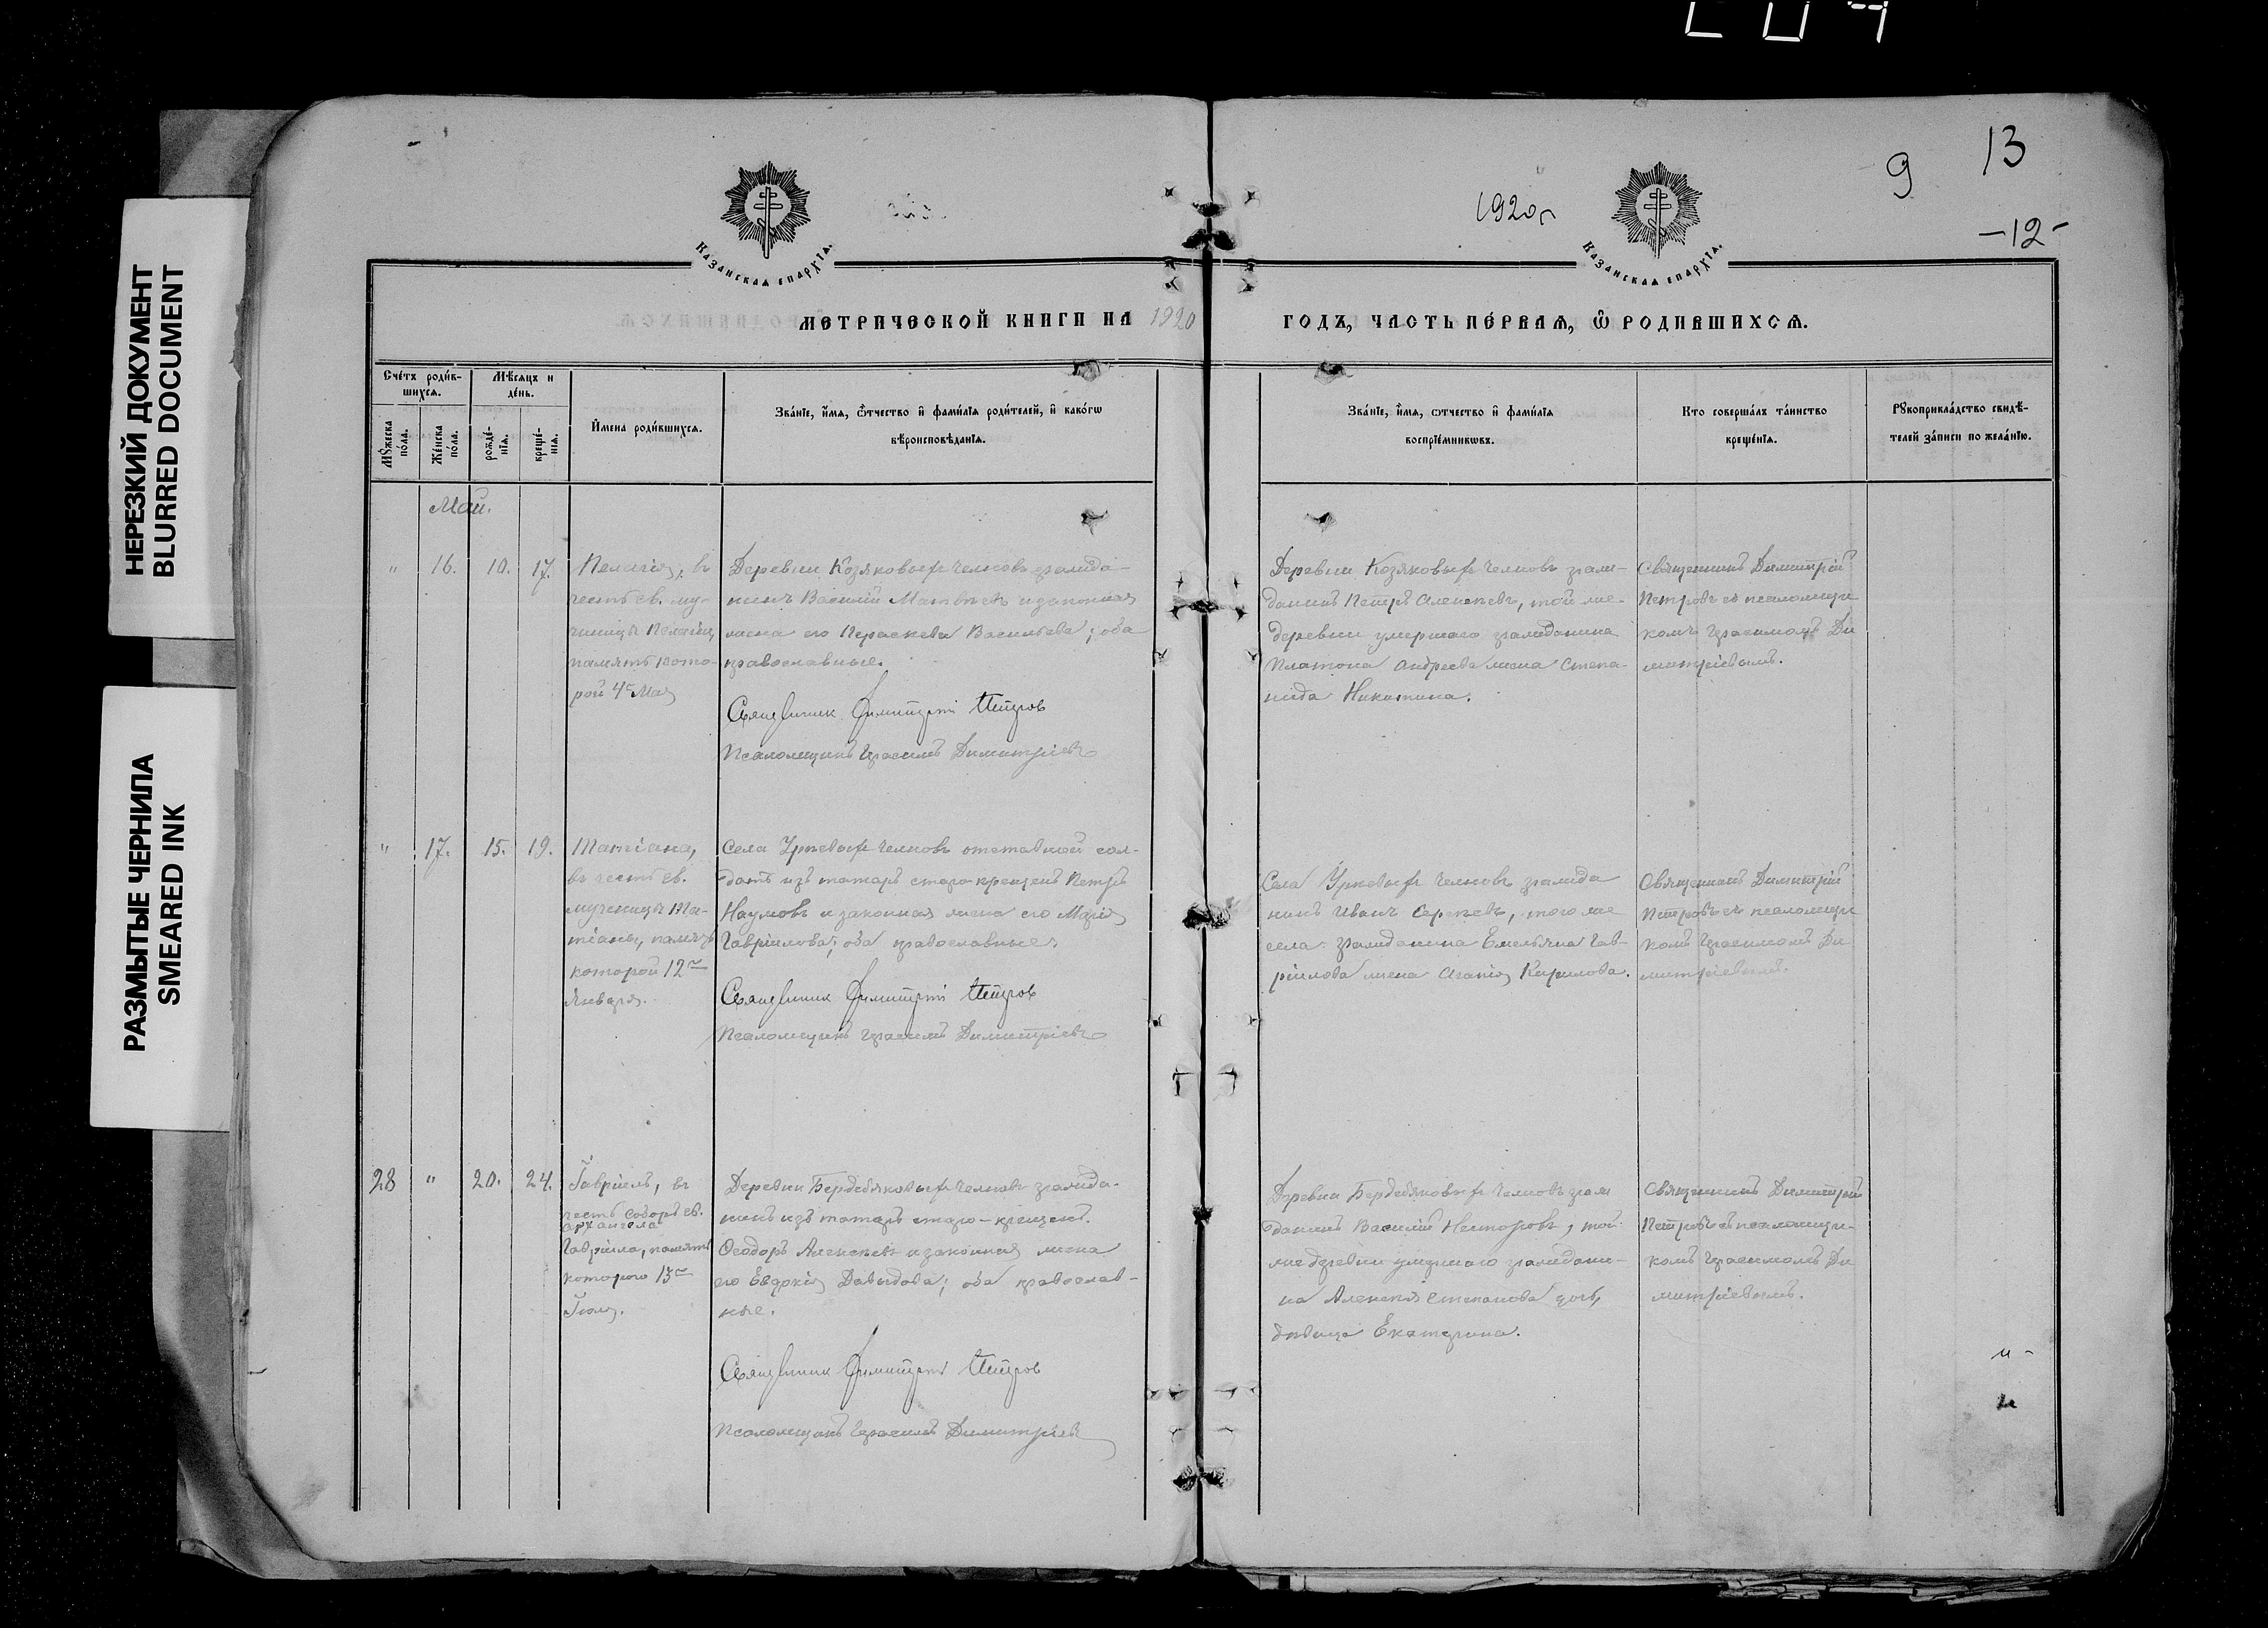 НЕРЕЗКИЙ ДОКУМЕНТ
BLURRED DOCUMENT
РАЗМЫТЫЕ ЧЕРНИЛА
SMEARED INK
9 13
1920 г
-12-
КАЗАНСКАЯ ЕПАРХІЯ.
КАЗАНСКАЯ ЕПАРХІЯ.
МЕТРИЧЕСКОЙ КНИГИ НА 1920
ГОДЪ, ЧАСТЬ ПЕ́РВАЯ, Ѽ РОДИВШИХСЯ.
Сче́тъ роди́в-
шихся.
Мѣ́сяцъ и
де́нь.
Мꙋ́жеска
по́ла.
Же́нска
по́ла.
рожде́-
нїя.
креще́-
нїя.
И҆́мена роди́вшихся.
Зва́нїе, и҆́мя, ѻ҆́тчество и҆ фами́лїя роди́телей, и҆ како́гѡ
вѣроисповѣ́данїя.
Зва́нїе, и҆́мя, ѻтчество и҆ фами́лїя
воспрїе́мникѡвъ.
Кто соверша́лъ та́инство
креще́нїя.
Рꙋкоприкла́дство свидѣ́-
телей за́писи по жела́нїю.
Май.
" 16. 10. 17.
Пелагія, въ
честь св. му-
ченицы Пелагіи,
память кото-
рой 4го Мая
Деревни Козяковыхъ Челновъ гражда-
нинъ Василій Матвѣевъ и законная
жена его Параскева Васильева; оба
православные.
Священник Димитрий Петров
Псаломщикъ Герасимъ Димитріевъ
Деревни Козяковыхъ Челновъ граж-
данинъ Петръ Алексѣевъ, той же
деревни умершаго гражданина
Платона Андреева жена Степа-
нида Никитина.
Священникъ Димитрій
Петровъ съ псаломщи
комъ Герасимомъ Ди
митріевымъ.
" 17. 15. 19.
Татіана,
въ честь св.
мученицы Та-
тіаны, память
которой 12го
Января.
Села Урѣевыхъ Челновъ отставной сол-
датъ изъ татаръ старо-крещенъ Петръ
Наумовъ и законная жена его Марія
Гавріилова; оба православные.
Священник Димитрий Петров
Псаломщикъ Герасимъ Димитріевъ
Села Урѣевыхъ Челновъ гражда
нинъ Иванъ Сергѣевъ, того же
села гражданина Емельяна Гав-
ріилова жена Агапія Кирилова.
Священникъ Димитрій
Петровъ съ псаломщи
комъ Герасимомъ Ди
митріевымъ.
28 " 20. 24.
Гавріилъ, въ
честь Соборъ св.
архангела
Гавріила, память
котораго 13го
Іюля.
Деревни Бердебяковыхъ Челновъ гражда-
нинъ изъ татаръ старо-крещенъ.
Ѳеодоръ Алексѣевъ и законная жена
его Евдокія Давыдова; оба православ-
ные.
Священник Димитрий Петров
Псаломщикъ Герасимъ Димитріевъ
Деревни Бердебяковыхъ Челновъ граж
данинъ Василій Несторовъ, той
же деревни умершаго граждани-
на Алексѣя Степанова дочь,
дѣвица Екатерина.
Священникъ Димитрій
Петровъ съ псаломщи-
комъ Герасимомъ Ди
митріевымъ.